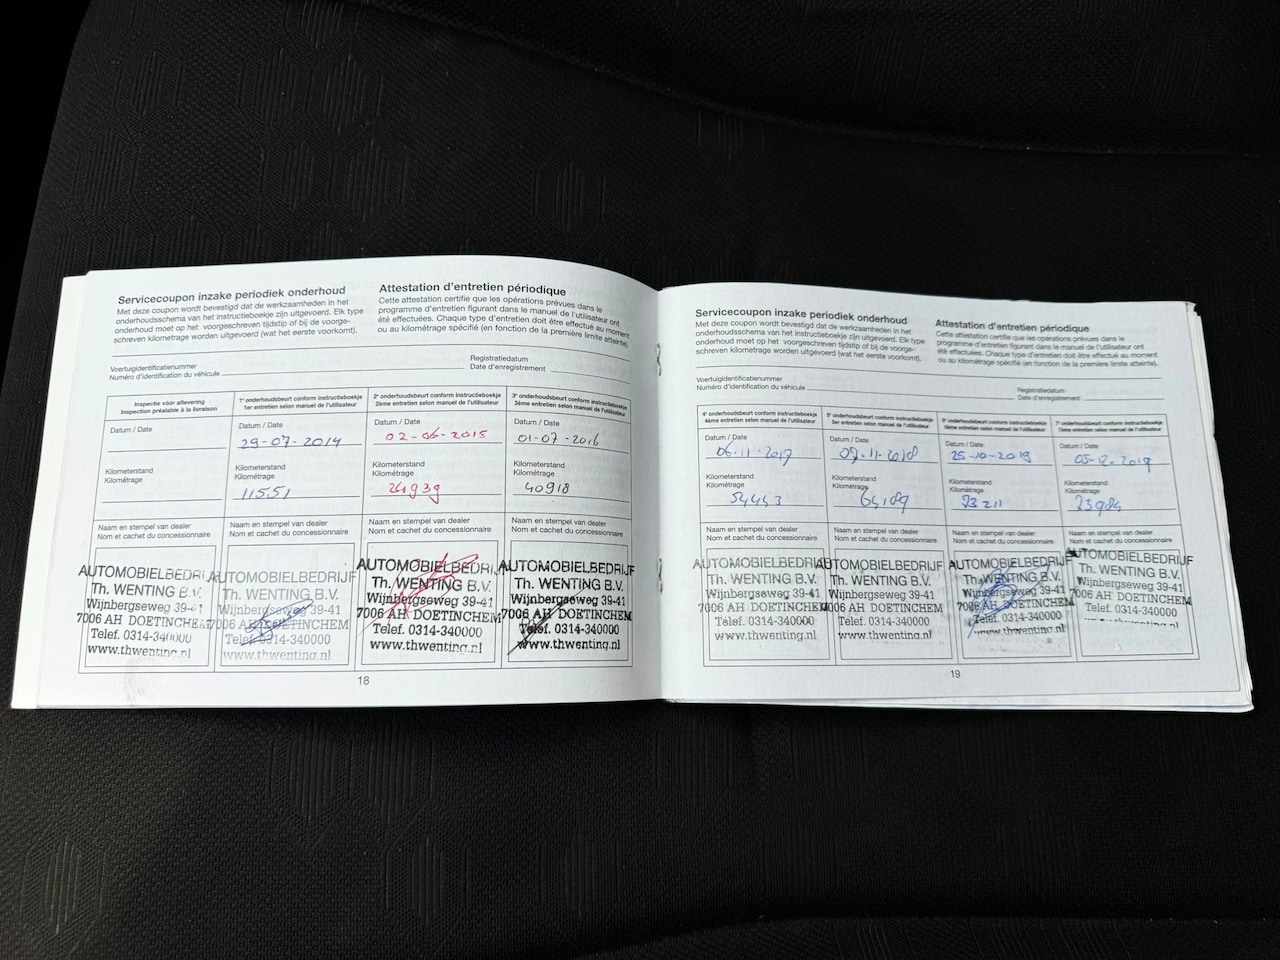 Servicecoupon inzake periodiek onderhoud
Met deze coupon wordt bevestigd dat de werkzaamheden in het
onderhoudsschema van het instructieboekje zijn uitgevoerd. Elk type
onderhoud moet op het voorgeschreven tijdstip of bij de voorge-
schreven kilometrage worden uitgevoerd (wat het eerste voorkomt).
Attestation d'entretien périodique
Cette attestation certifie que les opérations prévues dans le
programme d'entretien figurant dans le manuel de l'utilisateur ont
été effectuées. Chaque type d'entretien doit être effectué au moment
ou au kilométrage spécifié (en fonction de la première limite atteinte).
Voertuigidentificatienummer
Numéro d'identification du véhicule
Registratiedatum
Date d'enregistrement
Inspectie vóór aflevering
Inspection préalable à la livraison
Datum / Date
Kilometerstand
Kilométrage
Naam en stempel van dealer
Nom et cachet du concessionnaire
AUTOMOBIELBEDRIJ
Th. WENTING B.V.
Wijnbergseweg 39-41
7006 AH DOETINCHEM
Telef. 0314-340000
www.thwenting.nl
1e onderhoudsbeurt conform instructieboekje
1er entretien selon manuel de l'utilisateur
Datum / Date
29-07-2014
Kilometerstand
Kilométrage
11551
Naam en stempel van dealer
Nom et cachet du concessionnaire
AUTOMOBIELBEDRIJF
Th. WENTING B.V.
Wijnbergseweg 39-41
7006 AH DOETINCHEM
Telef. 0314-340000
www.thwenting.nl
2e onderhoudsbeurt conform instructieboekje
2ème entretien selon manuel de l'utilisateur
Datum / Date
02-06-2015
Kilometerstand
Kilométrage
Naam en stempel van dealer
Nom et cachet du concessionnaire
AUTOMOBIELBEDRIJ
Th. WENTING B.V.
Wijnbergseweg 39-41
7006 AH DOETINCHEM
Telef. 0314-340000
www.thwenting.nl
3e onderhoudsbeurt conform instructieboekje
3ème entretien selon manuel de l'utilisateur
Datum / Date
01-07-2016
Kilometerstand
Kilométrage
40918
Naam en stempel van dealer
Nom et cachet du concessionnaire
AUTOMOBIELBEDRIJF
Th. WENTING B.V.
Wijnbergseweg 39-41
7006 AH DOETINCHEM
Telef. 0314-340000
www.thwenting.nl
18
Servicecoupon inzake periodiek onderhoud
Met deze coupon wordt bevestigd dat de werkzaamheden in het
onderhoudsschema van het instructieboekje zijn uitgevoerd. Elk type
onderhoud moet op het voorgeschreven tijdstip of bij de voorge-
schreven kilometrage worden uitgevoerd (wat het eerste voorkomt).
Attestation d'entretien périodique
Cette attestation certifie que les opérations prévues dans le
programme d'entretien figurant dans le manuel de l'utilisateur ont
été effectuées. Chaque type d'entretien doit être effectué au moment
ou au kilométrage spécifié (en fonction de la première limite atteinte).
Voertuigidentificatienummer
Numéro d'identification du véhicule
Registratiedatum
Date d'enregistrement
4e onderhoudsbeurt conform instructieboekje
4ème entretien selon manuel de l'utilisateur
Datum / Date
06-11-2017
Kilometerstand
Kilométrage
54443
Naam en stempel van dealer
Nom et cachet du concessionnaire
AUTOMOBIELBEDRIJ
Th. WENTING B.V.
Wijnbergseweg 39-41
7006 AH DOETINCHEM
Telef. 0314-340000
www.thwenting.nl
5e onderhoudsbeurt conform instructieboekje
5er entretien selon manuel de l'utilisateur
Datum / Date
Kilometerstand
Kilométrage
64189
Naam en stempel van dealer
Nom et cachet du concessionnaire
AUTOMOBIELBEDRIJF
Th. WENTING B.V.
Wijnbergseweg 39-41
7006 AH DOETINCHEM
Telef. 0314-340000
www.thwenting.nl
onderhoudsbeurt conform instructieboekje
entretien selon manuel de l'utilisateur
Datum / Date
25-10-2019
Kilometerstand
Kilométrage
73211
Naam en stempel van dealer
Nom et cachet du concessionnaire
AUTOMOBIELBEDRIJF
Th. WENTING B.V.
Wijnbergseweg 39-41
7006 AH DOETINCHEM
Telef. 0314-340000
www.thwenting.nl
7e onderhoudsbeurt conform instructieboekje
7ème entretien selon manuel de l'utilisateur
Datum / Date
05-12-2019
Kilometerstand
Kilométrage
73984
Naam en stempel van dealer
Nom et cachet du concessionnaire
AUTOMOBIELBEDRIJF
Th. WENTING B.V.
Wijnbergseweg 39-41
7006 AH DOETINCHEM
Telef. 0314-340000
19